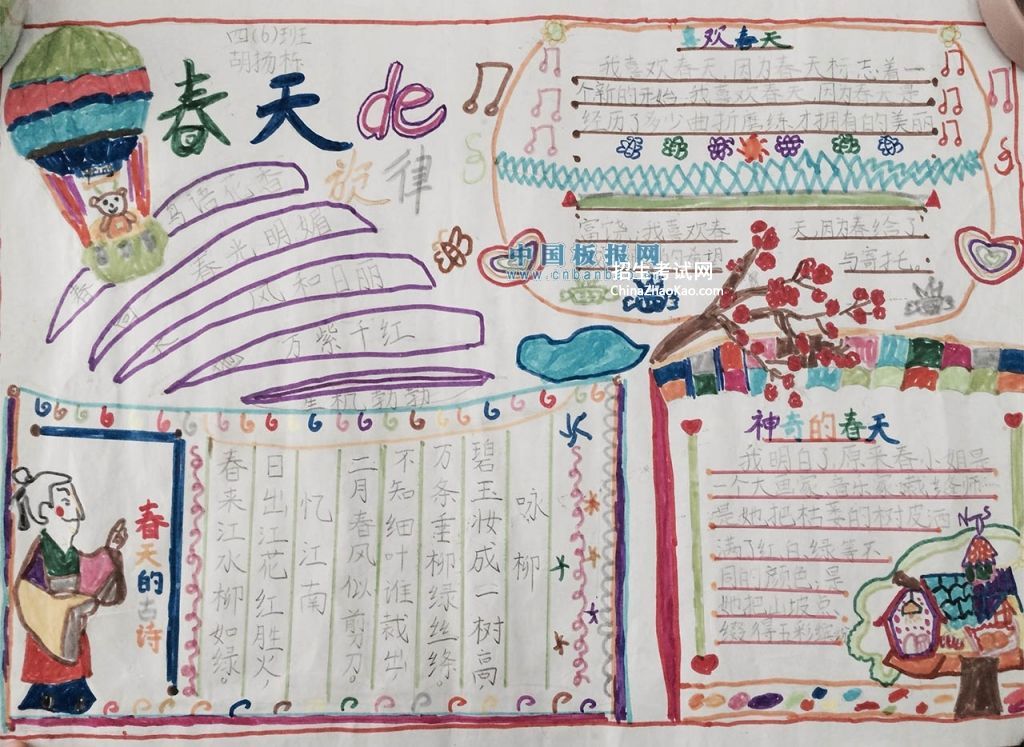 四(6)班
胡扬栋
春天de
旋律
鸟语花香
春光明媚
风和日丽
万紫千红
生机勃勃
喜欢春天
我喜欢春天,因为春天标志着一
个新的开始,我喜欢春天,因为春天是
经历了多少曲折磨练才拥有的美丽
富饶,我喜欢春天,因为春给了
与寄托。
中国板报网
www.cnbanb
招生考试网
ChinaZhaoKao.com
春天的古诗
咏柳
碧玉妆成一树高,
万条垂柳绿丝绦。
不知细叶谁裁出,
二月春风似剪刀。
忆江南
日出江花红胜火,
春来江水柳如绿。
神奇的春天
我明白了原来春小姐是
一个大画家、音乐家、裁缝师…
是她把枯萎的树皮洒
满了红、白、绿等不
同的颜色,是
她把山坡点
缀得五彩缤
N S